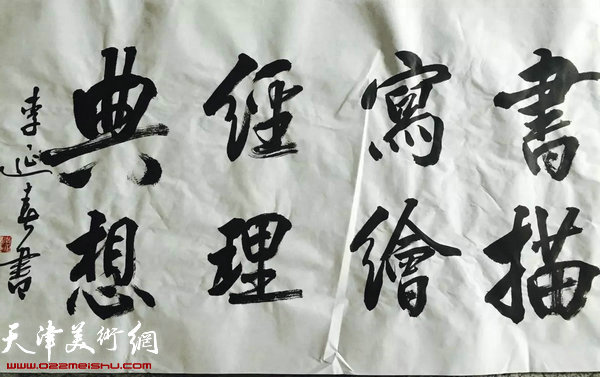 書寫經典
描繪理想
李延春書
天津美術網
www.022meishu.com